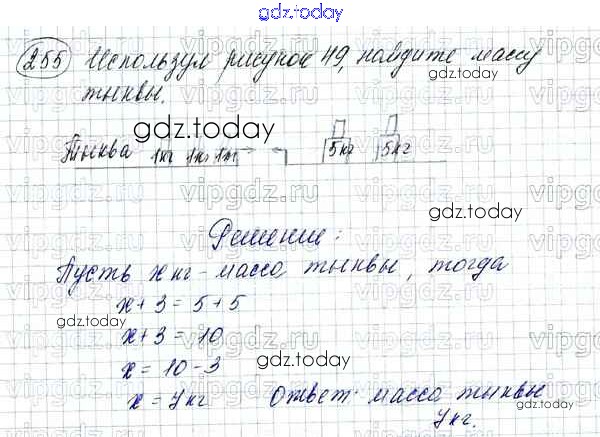 gdz.today
255 Используя рисунок 49, найдите массу
gdz.today
тыквы.
gdz.today
Тыква 1кг 1кг 1кг 5кг 5кг
gdz.today
Решение:
Пусть x кг - масса тыквы, тогда
x + 3 = 5 + 5
gdz.today
x + 3 = 10
gdz.today
x = 10 - 3
x = 7кг Ответ: масса тыквы
7кг.